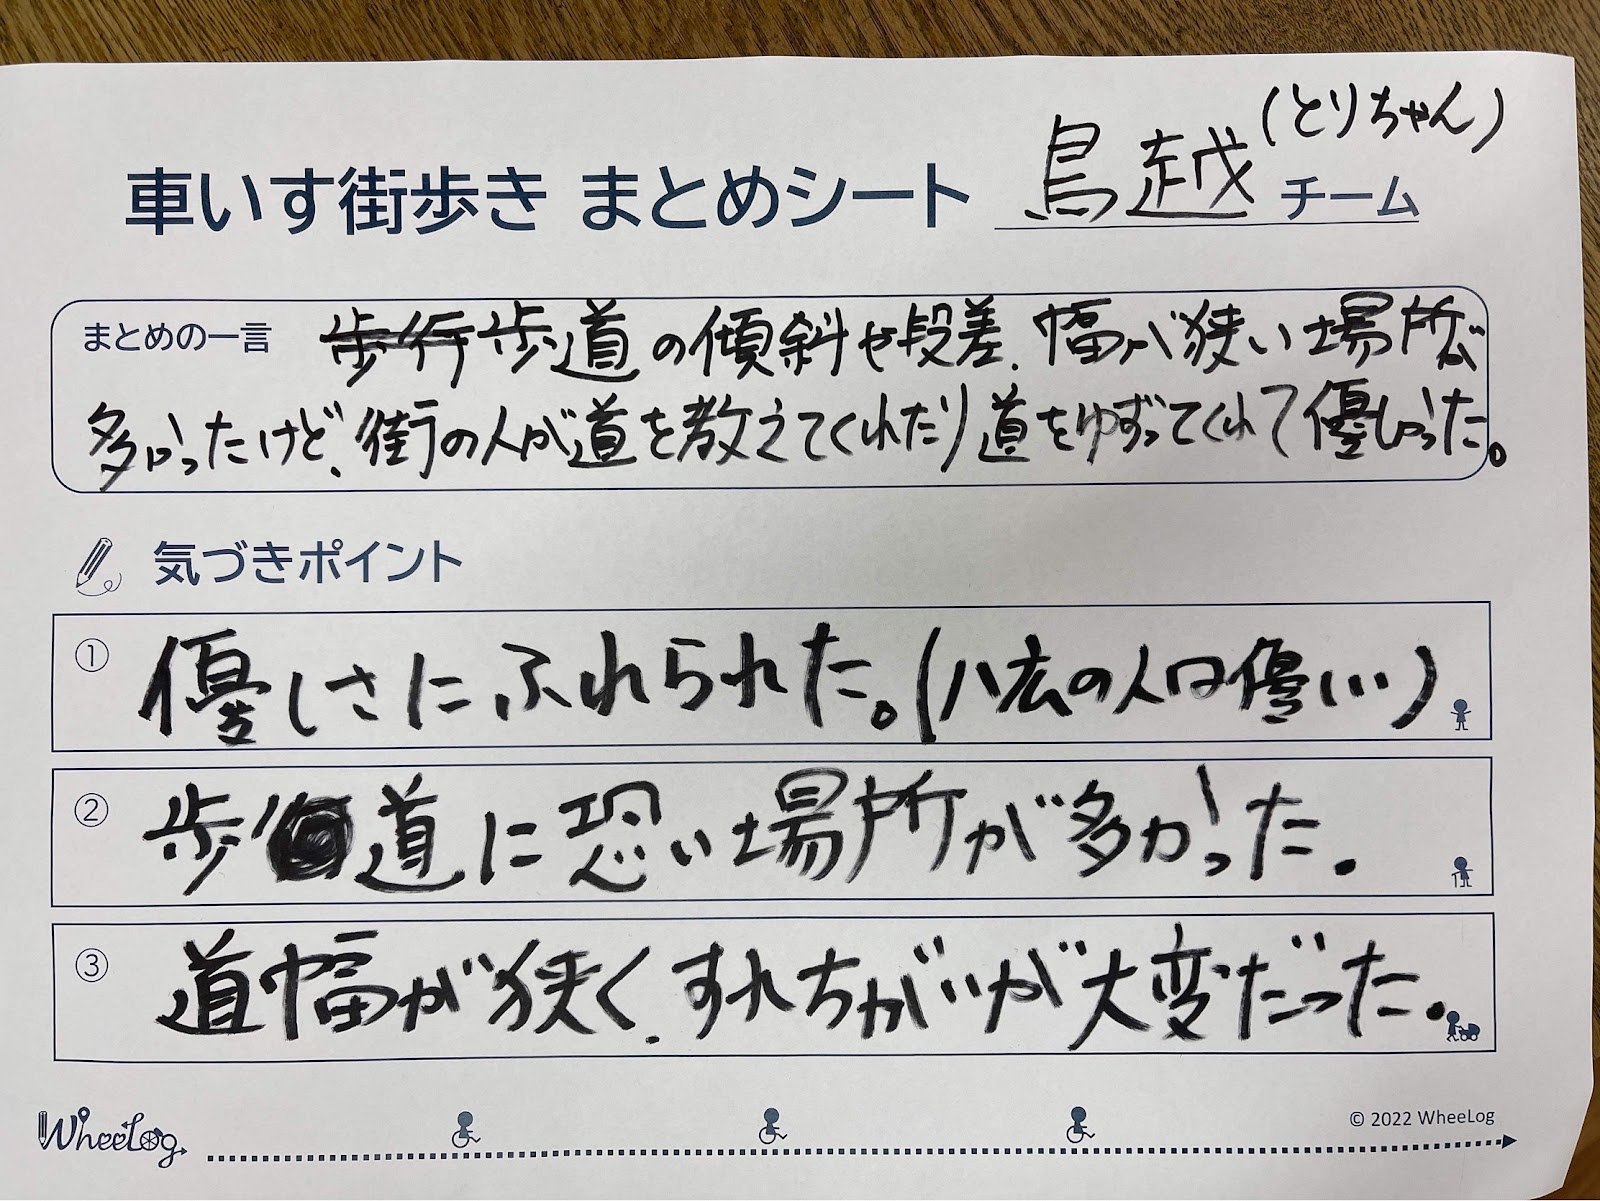 (とりちゃん)
車いす街歩き まとめシート 鳥越 チーム
まとめの一言 歩行歩道の傾斜や段差、幅が狭い場所が
多かったけど、街の人が道を教えてくれたり道をゆずってくれて優しかった。
気づきポイント
① 優しさにふれられた。(八広の人は優しい)
② 歩道に恐い場所が多かった。
③ 道幅が狭く、すれちがいが大変だった。
WheeLog
© 2022 WheeLog